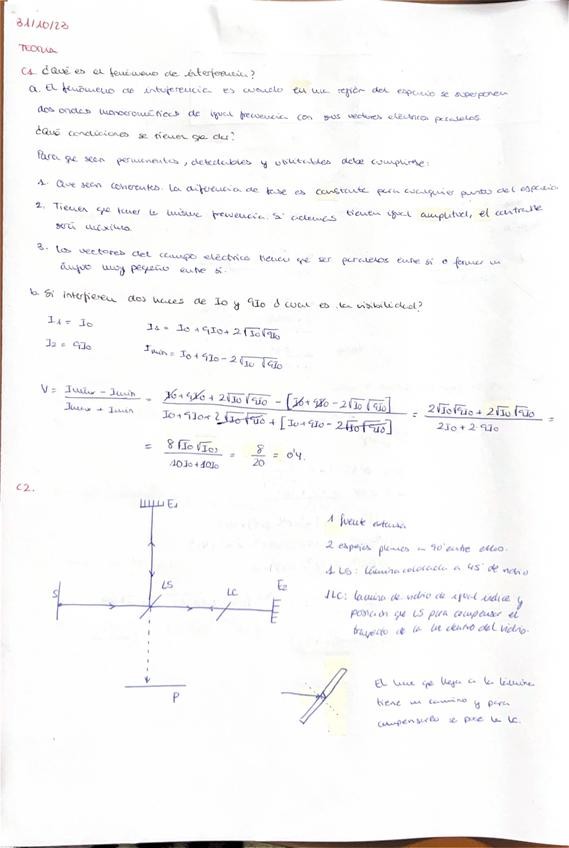 31/10/23
TEORIA
C1 ¿Qué es el fenómeno de interferencia?
a. El fenómeno de interferencia es cuando en una región del espacio se superponen
dos ondas monocromáticas de igual frecuencia con sus vectores eléctricos paralelos
¿Qué condiciones se tienen que dar?
Para qe sean permanentes, detectables y utilizables debe cumplirse:
1. Que sean coherentes. La diferencia de fase es constante para cualquier punto del espacio
2. Tienen qe tener la misma frecuencia. Si además tienen igual amplitud, el contraste
será máximo.
3. Los vectores del campo eléctrico tienen qe ser paralelos entre sí o formar un
ángulo muy pequeño entre sí.
b. Si interfieren dos haces de I0 y 9I0 ¿cual es la visibilidad?
I1 = I0 I1 = I0 + 9I0 + 2√I0 √9I0
I2 = 9I0 Imin = I0 + 9I0 - 2√I0 √9I0
V = (Imax - Imin)/(Imax + Imin) = (I0 + 9I0 + 2√I0√9I0 - [I0 + 9I0 - 2√I0√9I0])/(I0 + 9I0 + 2√I0√9I0 + [I0 + 9I0 - 2√I0√9I0]) = (2√I0√9I0 + 2√I0√9I0)/(2I0 + 2·9I0) =
= 8√I0√I0/(10I0 + 10I0) = 8/20 = 0'4.
C2.
E1
1 fuente extensa
2 espejos planos a 90° entre ellos.
1 LS: lámina colocada a 45° de vidrio
1 LC: lámina de vidrio de igual índice y
posición que LS para compensar el
trayecto de la luz dentro del vidrio.
S LS LC E2
P
El haz qe llega a la lámina
tiene un camino y para
compensarlo se pone la LC.